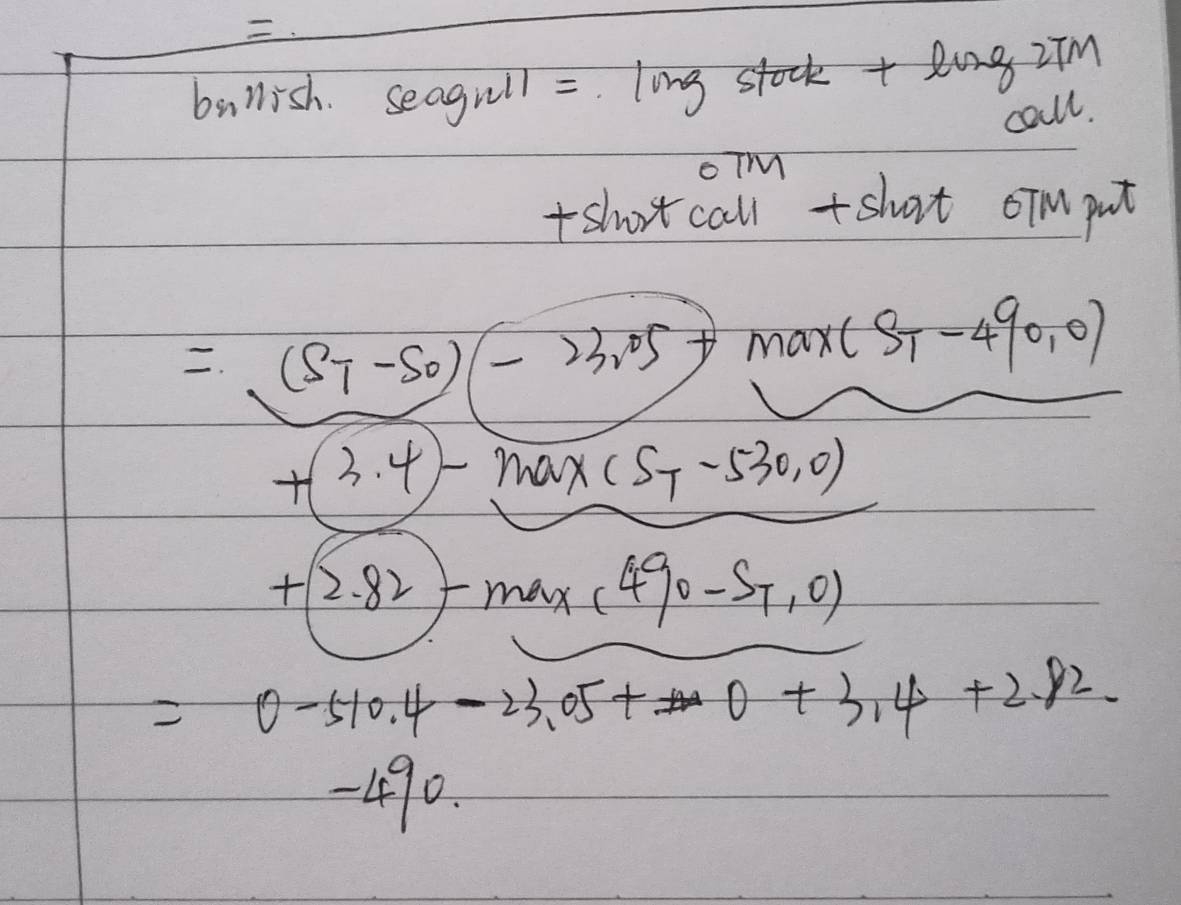 =.
bullish. seagull =. long stock + long ITM
call.
OTM
+ short call + short OTM put
=. (S_T - S_0) - 23.05 + max(S_T - 490, 0)
+ 3.4 - max(S_T - 530, 0)
+ 2.82 - max(490 - S_T, 0)
= 0 - 510.4 - 23.05 + 0 + 3.4 + 2.82.
- 490.